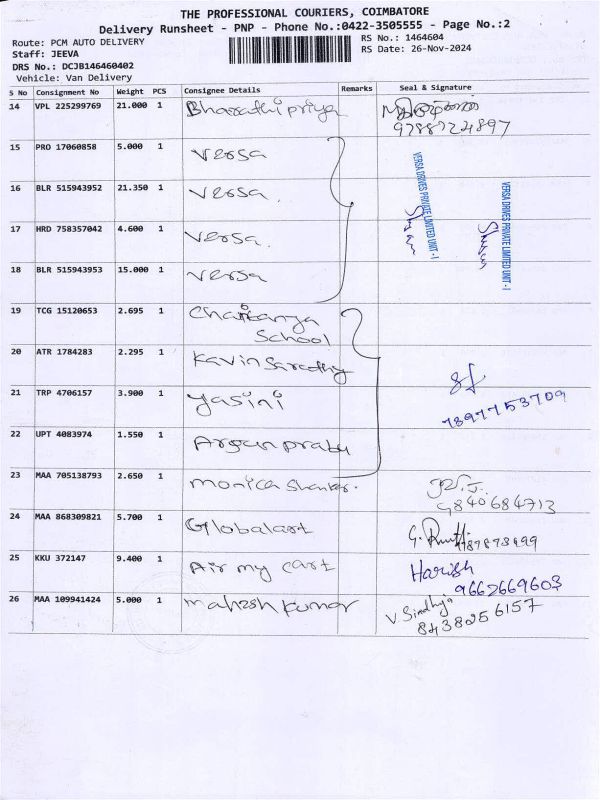 THE PROFESSIONAL COURIERS, COIMBATORE
Delivery Runsheet - PNP - Phone No.:0422-3505555 - Page No.:2
Route: PCM AUTO DELIVERY
RS No.: 1464604
Staff: JEEVA
RS Date: 26-Nov-2024
DRS No.: DCJB146460402
Vehicle: Van Delivery
S No Consignment No Weight PCS Consignee Details Remarks Seal & Signature
14 VPL 225299769 21.000 1 Bharathi priya
9788724897
15 PRO 17060858 5.000 1 Versa
16 BLR 515943952 21.350 1 Versa
VERSA DRIVES PRIVATE LIMITED UNIT-I
VERSA DRIVES PRIVATE LIMITED UNIT-I
17 HRD 758357042 4.600 1 Versa
18 BLR 515943953 15.000 1 Versa
19 TCG 15120653 2.695 1 Chaitanya
School
20 ATR 1784283 2.295 1 Kavin Sarathy
21 TRP 4706157 3.900 1 Yasini
78977 53709
22 UPT 4083974 1.550 1 prabu
23 MAA 705138793 2.650 1 monica Shankar.
9840684713
24 MAA 868309821 5.700 1 Globalart
25 KKU 372147 9.400 1 Air my cart Harish
9662669603
26 MAA 109941424 5.000 1 mahesh kumar V Sindhuja
8438256157